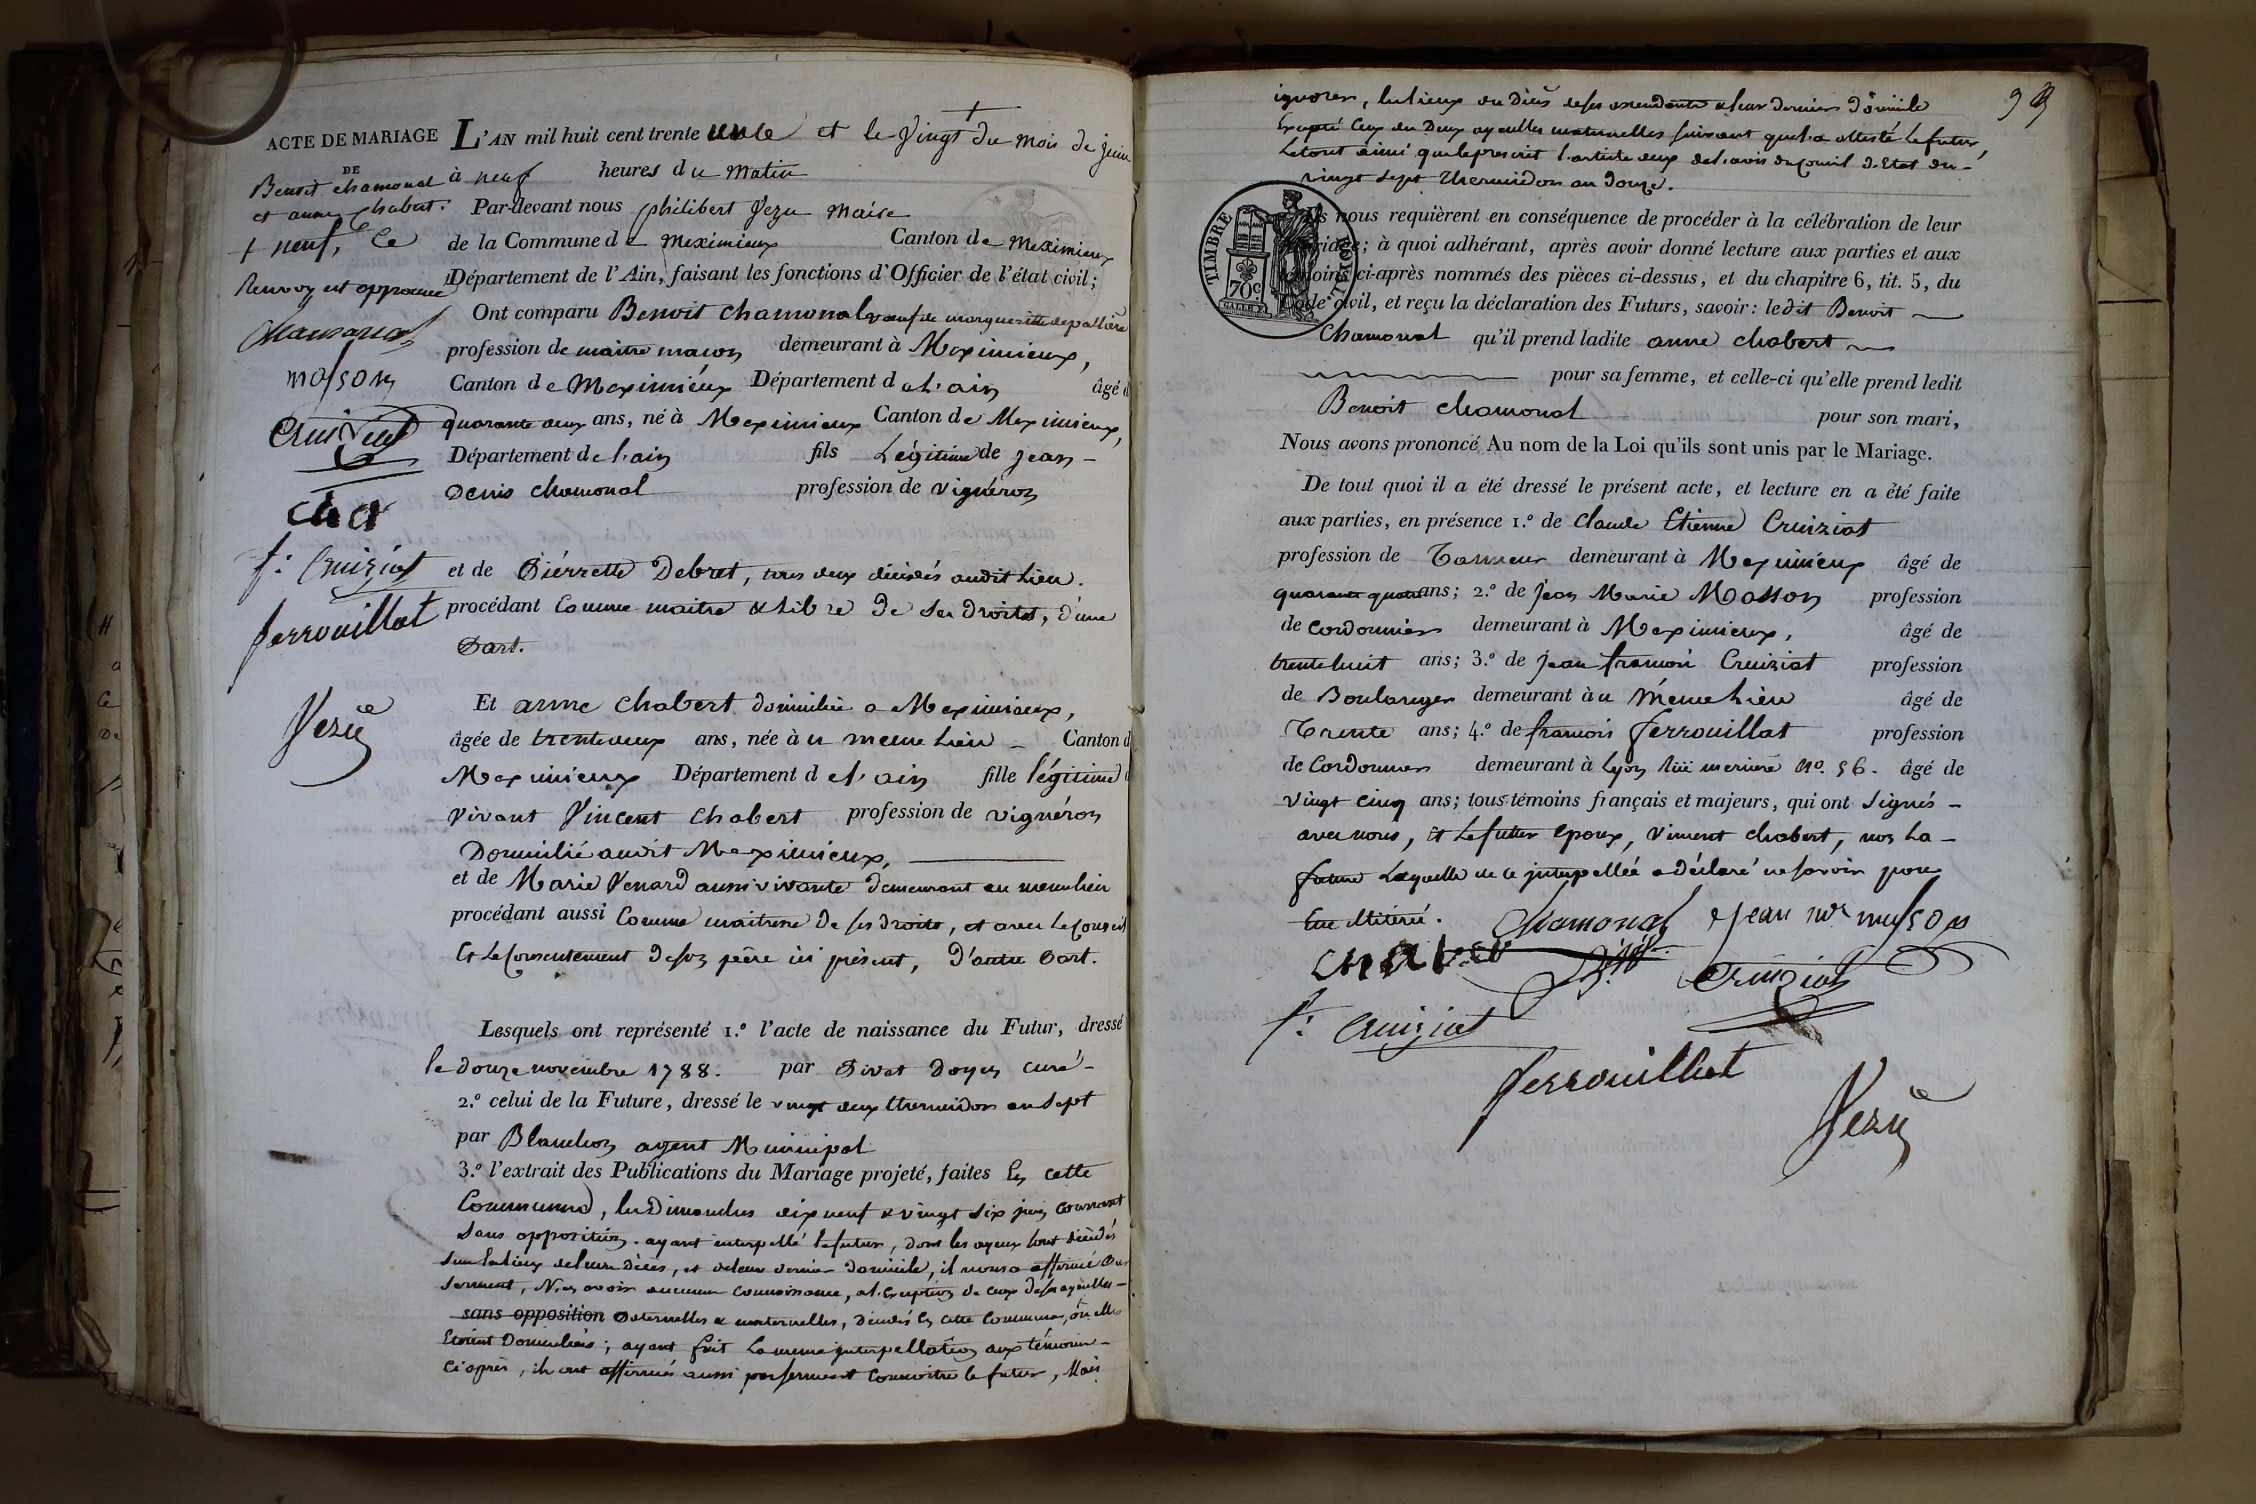 ACTE DE MARIAGE
DE
Benoit chamonal
et anne Chabert.
+ neuf, Ce
Renvoy est approuvé
Chamonal
masson
Cruiziat
cha
f: Cruiziat
ferrouillat
Vezu
L'AN mil huit cent trente un et le Vingt + du mois de juin
à neuf heures du Matin
Par-devant nous philibert Vezu Maire
de la Commune de Meximieux Canton de Meximieux
Département de l'Ain, faisant les fonctions d'Officier de l'état civil;
Ont comparu Benoit Chamonal veuf de marguerite depallière
profession de maitre maçon demeurant à Meximieux,
Canton de Meximieux Département de l'ain âgé d
quarante deux ans, né à Meximieux Canton de Meximieux,
Département de l'ain fils Légitime de Jean -
Denis chamonal profession de vignéron
et de Piérrette Debret, tous deux décédés audit Lieu.
procédant Comme maitre & Libre De Ses Droits, d'une
Part.
Et anne Chabert domiciliée a Meximieux,
âgée de trente deux ans, née à u meme Lieu - Canton d
Meximieux Département de l'ain fille légitime d
vivant Vincent Chabert profession de vignéron
Domicilié audit Meximieux,
et de Marie Venard aussi vivante demeurant au meme lieu
procédant aussi Comme maitresse De ses droits, et avec Le Conseil
Et Le Consentement de son père ici présent, D'autre Part.
Lesquels ont représenté 1.º l'acte de naissance du Futur, dressé
le douze novembre 1788. par Pivet Doyen curé -
2.º celui de la Future, dressé le vingt deux thermidor an Sept
par Blanchon agent Municipal
3.º l'extrait des Publications du Mariage projeté, faites En cette
Commune, les Dimanches dix neuf & vingt six juin Courrant
Sans opposition. ayant interpellé le futur, dont les ayeux sont décédés
Sur les lieux de leurs décès, et de leur dernier domicile, il nous a affirmé Par
Serment, N'en avoir aucune connoissance, a l'Exception de ceux de ses ayeulles -
sans opposition Paternelles & maternelles, décédés En cette Commune, où elles
Etoient Domiciliées; ayant fait La meme jnterpellation aux témoins -
Ci après, ils ont affirmés aussi par serment Connoitre le futur, Mais
99
ignorer, les lieux du Décès de ses ascendants & leur dernier Domicile
Excepté Ceux des Deux ayeulles maternelles suivant que l'a attesté Le futur,
Le tout ainsi que le prescrit l'article deux de l'avis du Conseil d'Etat du -
vingt sept thermidor an Douze.
TIMBRE ROYAL
70c
Ils nous requièrent en conséquence de procéder à la célébration de leur
mariage; à quoi adhérant, après avoir donné lecture aux parties et aux
témoins ci-après nommés des pièces ci-dessus, et du chapitre 6, tit. 5, du
Code civil, et reçu la déclaration des Futurs, savoir: ledit Benoit
Chamonal qu'il prend ladite anne Chabert
pour sa femme, et celle-ci qu'elle prend ledit
Benoit Chamonal pour son mari,
Nous avons prononcé Au nom de la Loi qu'ils sont unis par le Mariage.
De tout quoi il a été dressé le présent acte, et lecture en a été faite
aux parties, en présence 1.º de Claude Etienne Cruiziat
profession de Tanneur demeurant à Meximieux âgé de
quarante quatre ans; 2.º de Jean Marie Masson profession
de Cordonnier demeurant à Meximieux, âgé de
trente huit ans; 3.º de Jean françois Cruiziat profession
de Boulanger demeurant àu Même Lieu âgé de
Trente ans; 4.º de françois ferrouillat profession
de Cordonnier demeurant à Lyon rüe merciere Nº. 56. âgé de
Vingt Cinq ans; tous témoins français et majeurs, qui ont Signés -
avec nous, Et Le futur Epoux, Vincent Chabert, non La -
future Laquelle de ce jnterpellée a déclaré ne savoir pour
Chamonal
Jean mie masson
chaber
Cruiziat
f: Cruiziat
ferrouillat
Vezu